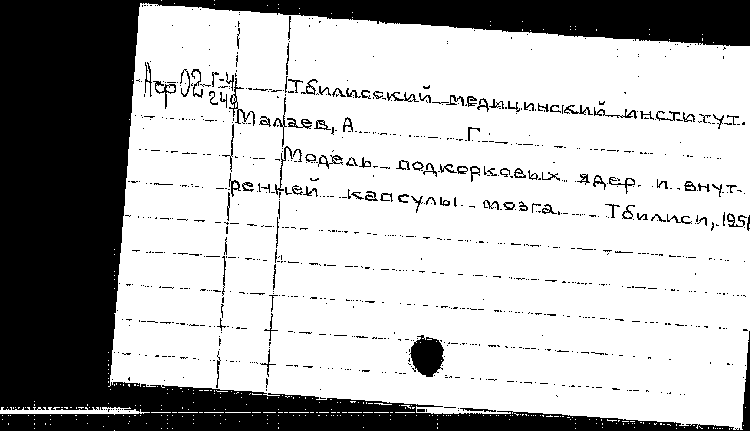 Афо2 Г-4
249
Тбилисский медицинский институт.
Малаев, А Г
Модель подкорковых ядер и внут-
ренней капсулы мозга. Тбилиси, 195